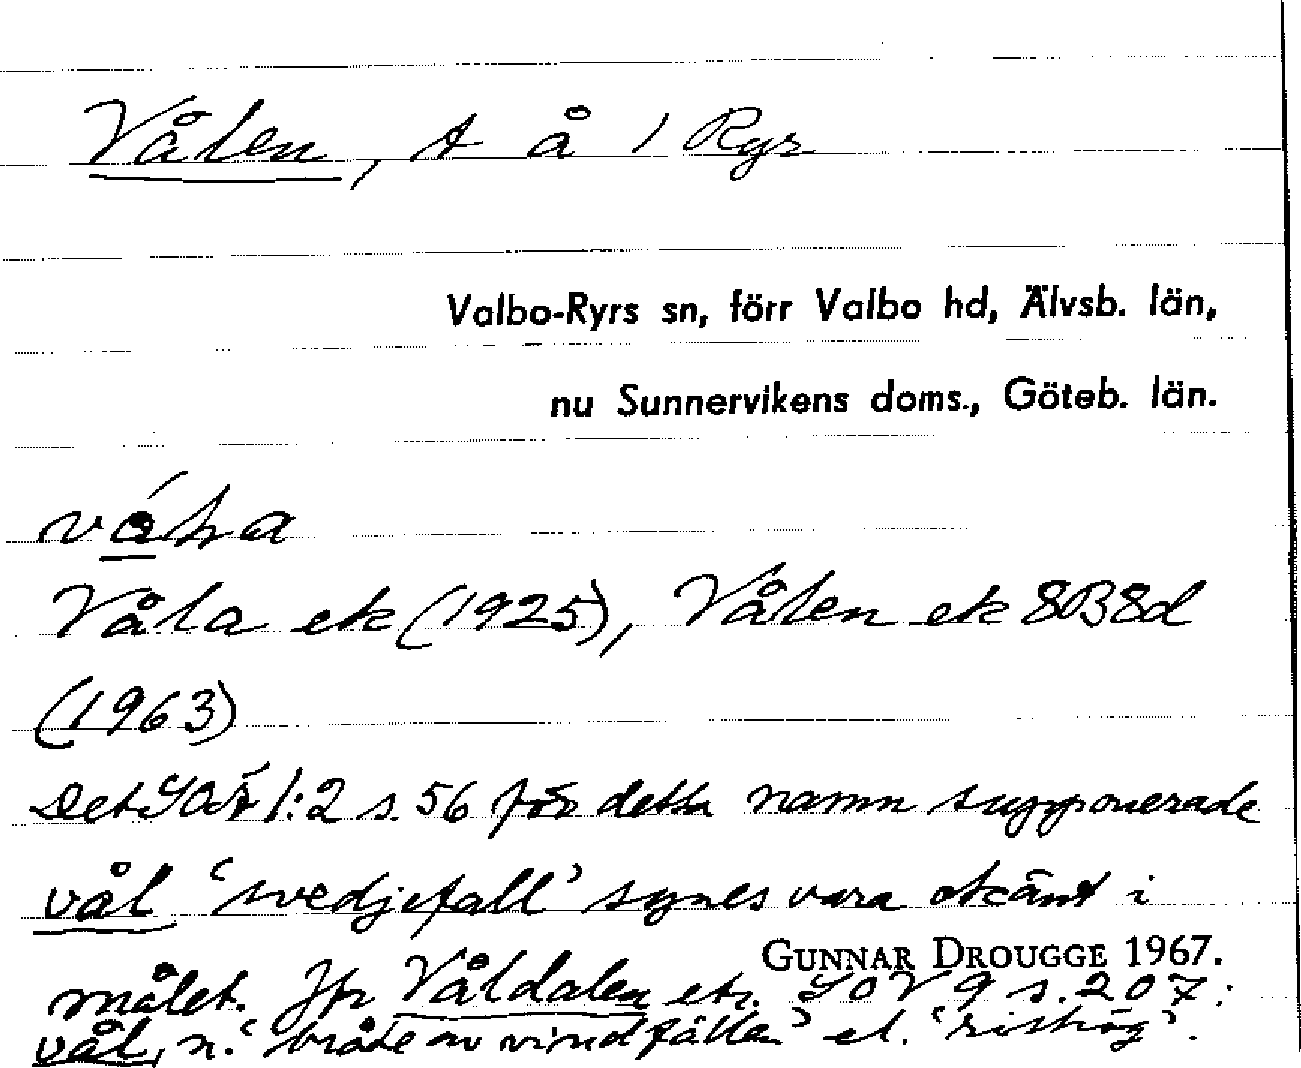 Vålen, t å / Ryr
Valbo-Ryrs sn, förr Valbo hd, Älvsb. län,
nu Sunnervikens doms., Göteb. län.
Våla ek (1925), Vålen ek 8B8d
(1963)
Det SOÄ 1:2 s. 56 för detta namn supponerade
vål 'svedjefall' synes vara okänt i
GUNNAR DROUGGE 1967.
målet. Jfr Våldalen etc. SOV 9 s. 207:
vål, n. 'bråte av vindfällen' el. 'rishög'.